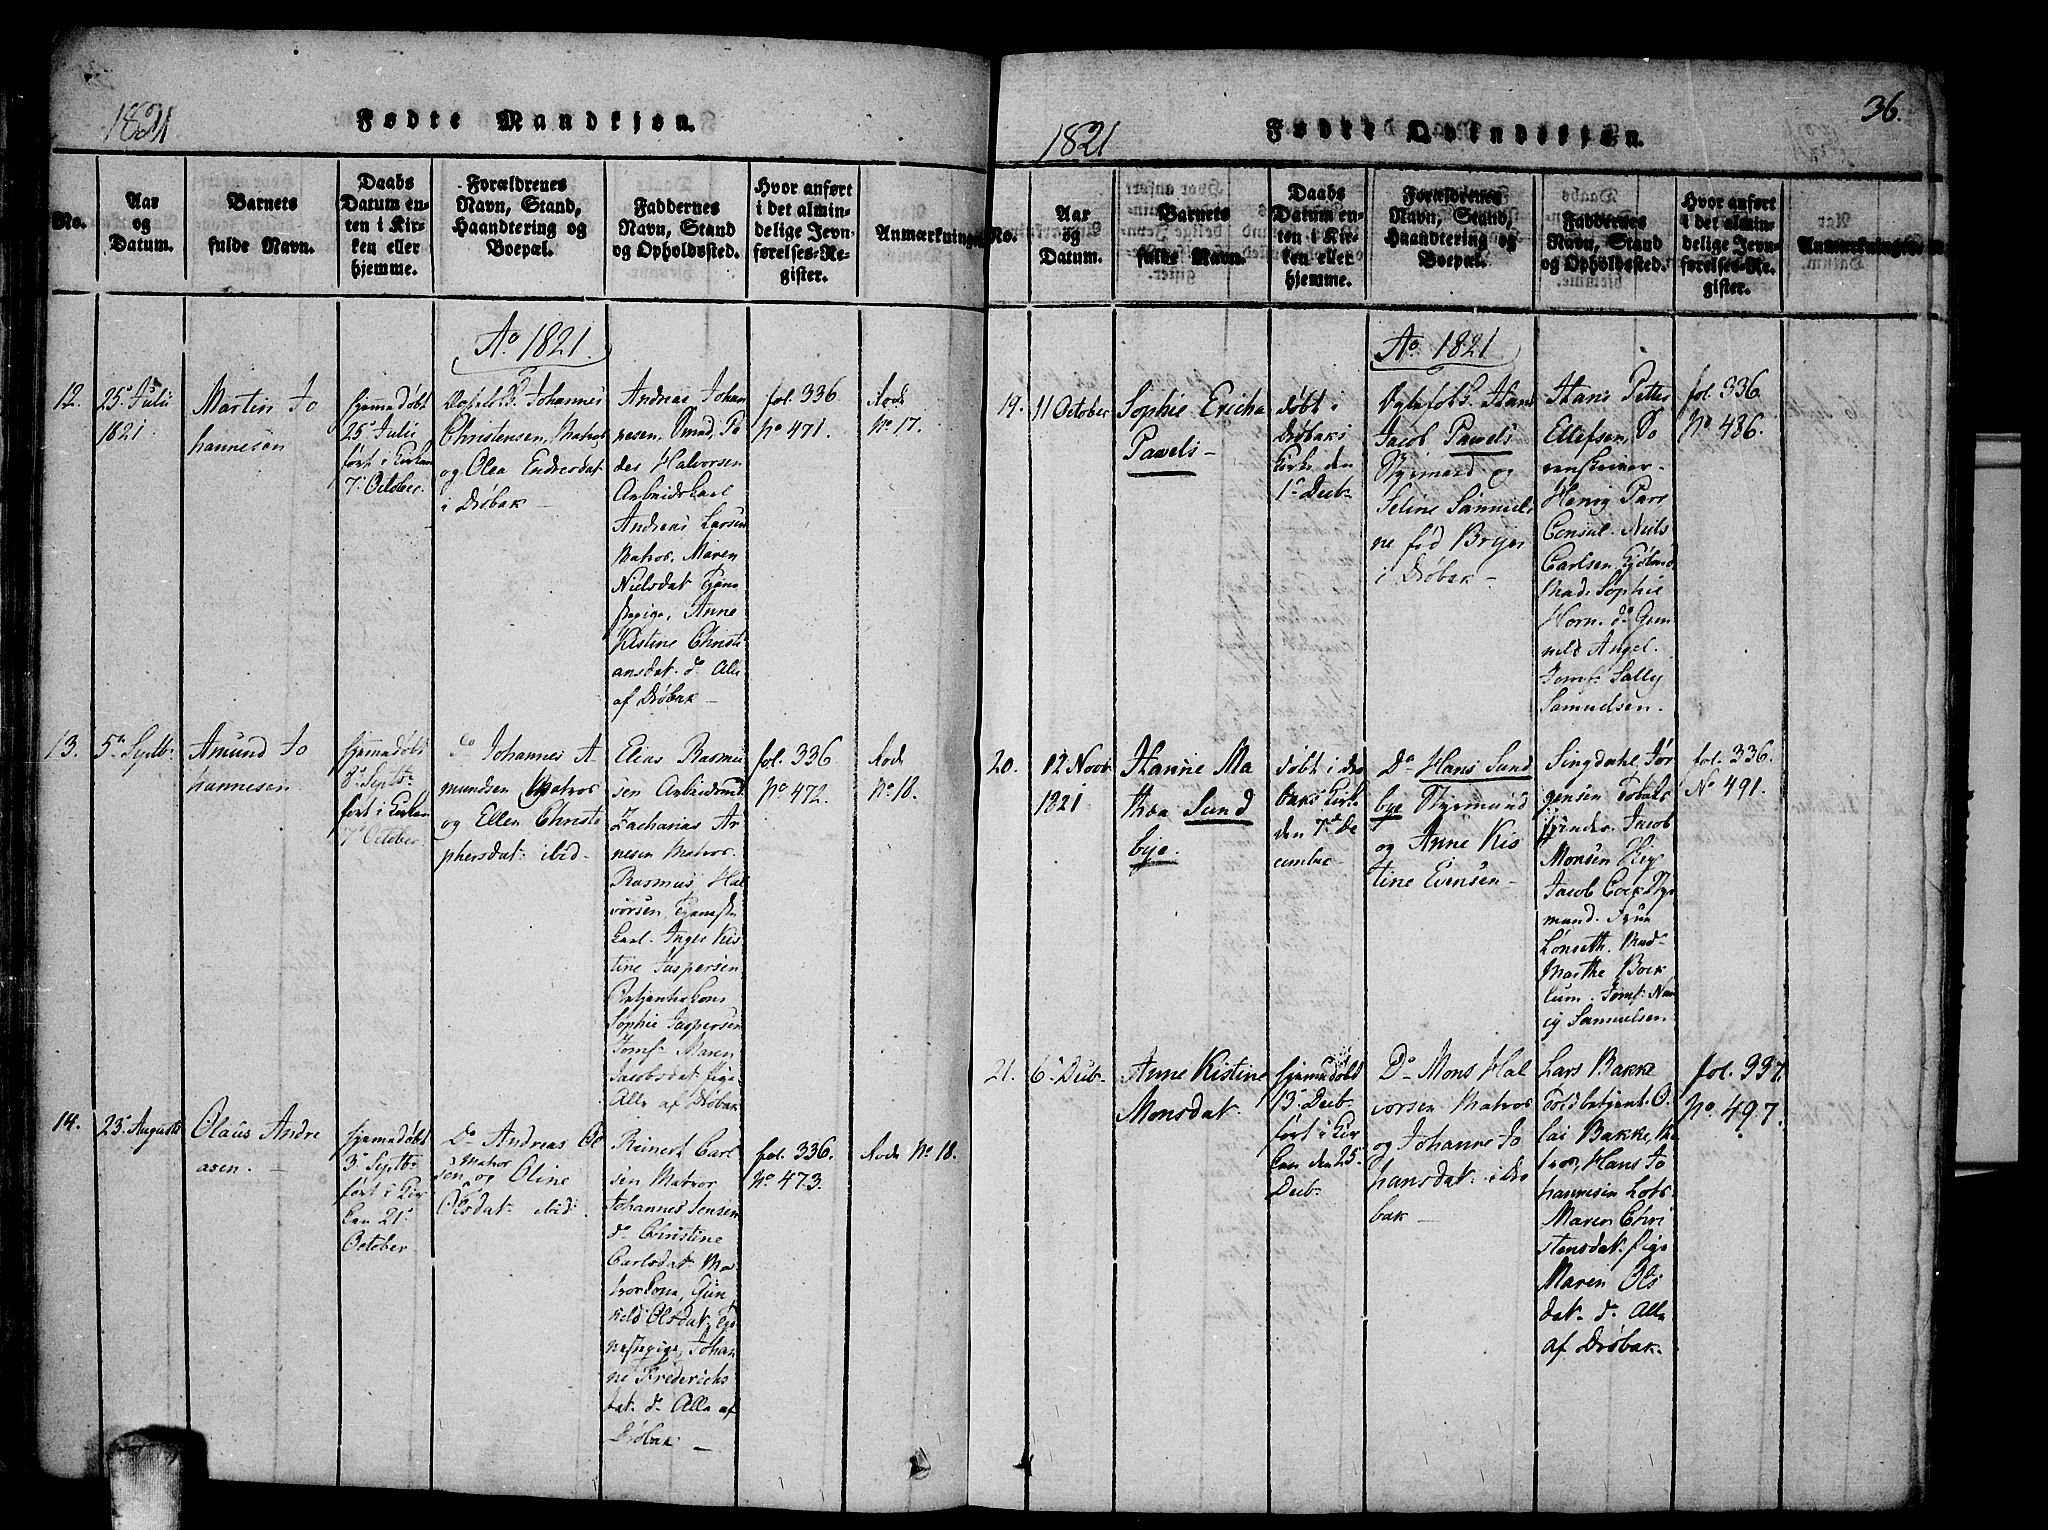 1821
Fødte Mandkjøn.
No.
Aar
og
Datum.
Barnets
fulde Navn.
Daabs
Datum en-
ten i Kir-
ken eller
hjemme.
Forældrenes
Navn, Stand,
Haandtering og
Boepæl.
Faddernes
Navn, Stand
og Opholdssted.
Hvor anført
i det almin-
delige Jevn-
førelses-Re-
gister.
Anmærkninger.
Ao 1821.
12.
25. Julii
1821
Martin Jo
hannesen
hjemmedøbt
25. Julii
ført i Kirken
7. October.
Johannes
Christensen, Matros
og Olea Endresdat
i Drøbak
Andreas Johan
nesen, Smed, Pe
der Halvorsen
Arbeidskarl
Andreas Larsen
Matros, Maren
Nielsdat Tjene
stepige, Anne
Kistine Christi
ansdat. do Alle
af Drøbak
fol. 336
No 471.
Rode
No 17.
13.
5te Septb.
Amund Jo
hannesen
hjemmedøbt
8. Septb.
ført i Kirken
7. October.
Do Johannes A
mundsen Matros
og Ellen Christo
phersdat. ibid
Elias Rasmu
sen Arbeidsmd
Zacharias Ar
nesen Matros.
Rasmus Hal
vorsen, Tjeneste
karl. Inger Kis
tine Jaspersen
Betjentskone
Sophie Jaspersen
Jomf. Maren
Jacobsdat Pige
Alle af Drøbak
fol. 336
No 472.
Rode
No 18.
14.
23. August
Olaus Andre
asen.
hjemmedøbt
3. Septb.
ført i Kir
ken 21.
October
Do Andreas Ol
sen Matros og Oline
Olsdat. ibid.
Reinert Carl
sen Matros
Johannes Jensen
do Christine
Carlsdat Ma
troskone, Gun
nild Olsdat, Tje
nestepige, Johan
ne Frederichs
dat. do Alle af
Drøbak
fol. 336.
No 473.
Rode No 18.
36.
1821
Fødte Qvindekjøn.
No.
Aar
og
Datum.
Barnets
fulde Navn.
Daabs
Datum en-
ten i Kir-
ken eller
hjemme.
Forældrenes
Navn, Stand,
Haandtering og
Boepæl.
Faddernes
Navn, Stand
og Opholdssted.
Hvor anført
i det almin-
delige Jevn-
førelses-Re-
gister.
Anmærkninger.
Ao 1821
19.
11 October
Sophie Ericha
Pawels
døbt i
Drøbaks
Kirke den
1. Decb.
Hans
Jacob Pawels
Styrmand og
Seline Samueli
ne fød Bryn
i Drøbak
Hans Petter
Ellefsen, So
renskriver
Henrig Parr
Consul. Niels
Carlsen Kjøbmd
Mad. Sophie
Horn. do Gun
nild Angel.
Jomf. Sally
Samuelsen.
fol. 336
No 486.
20.
12 Novb.
1821
Hanne Ma
thea Sund
bye.
døbt i Drø
baks Kirke
den 7. De
cember
Do Hans Sund
bye Styrmand
og Anne Kis
tine Evensen
Singdahl Jør
gensen Told
Jacob
Monsen
Jacob Cock Styr
mand. Frue
Lonseth. Mad.
Marthe Bock
lum. Jomf. Nan
cy Samuelsen
fol. 336.
No 491.
21.
6. Decb.
Anne Kistine
Monsdat.
hjemmedøbt
13. Decb.
ført i Kir
ken den 25.
Decb.
Do Mons Hal
vorsen Matros
og Johanne Jo
hansdat. i Drø
bak
Lars Bakke
Toldbetjent. O
lai Bakke, Ma
tros, Hans Jo
hannesen Lots
Maren Chri
stensdat. Pige
Maren Ols
dat. do Alle
af Drøbak.
fol. 337.
No 497.